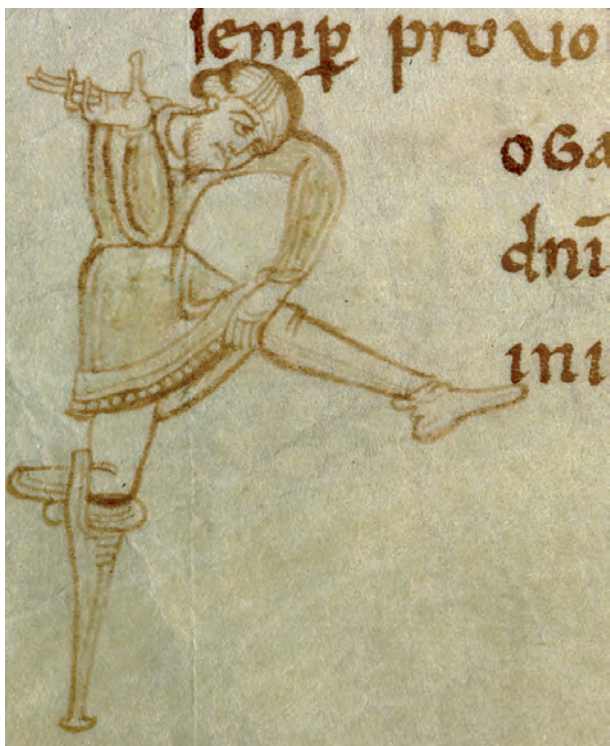 semꝑ prouo
oga
dnī
ini